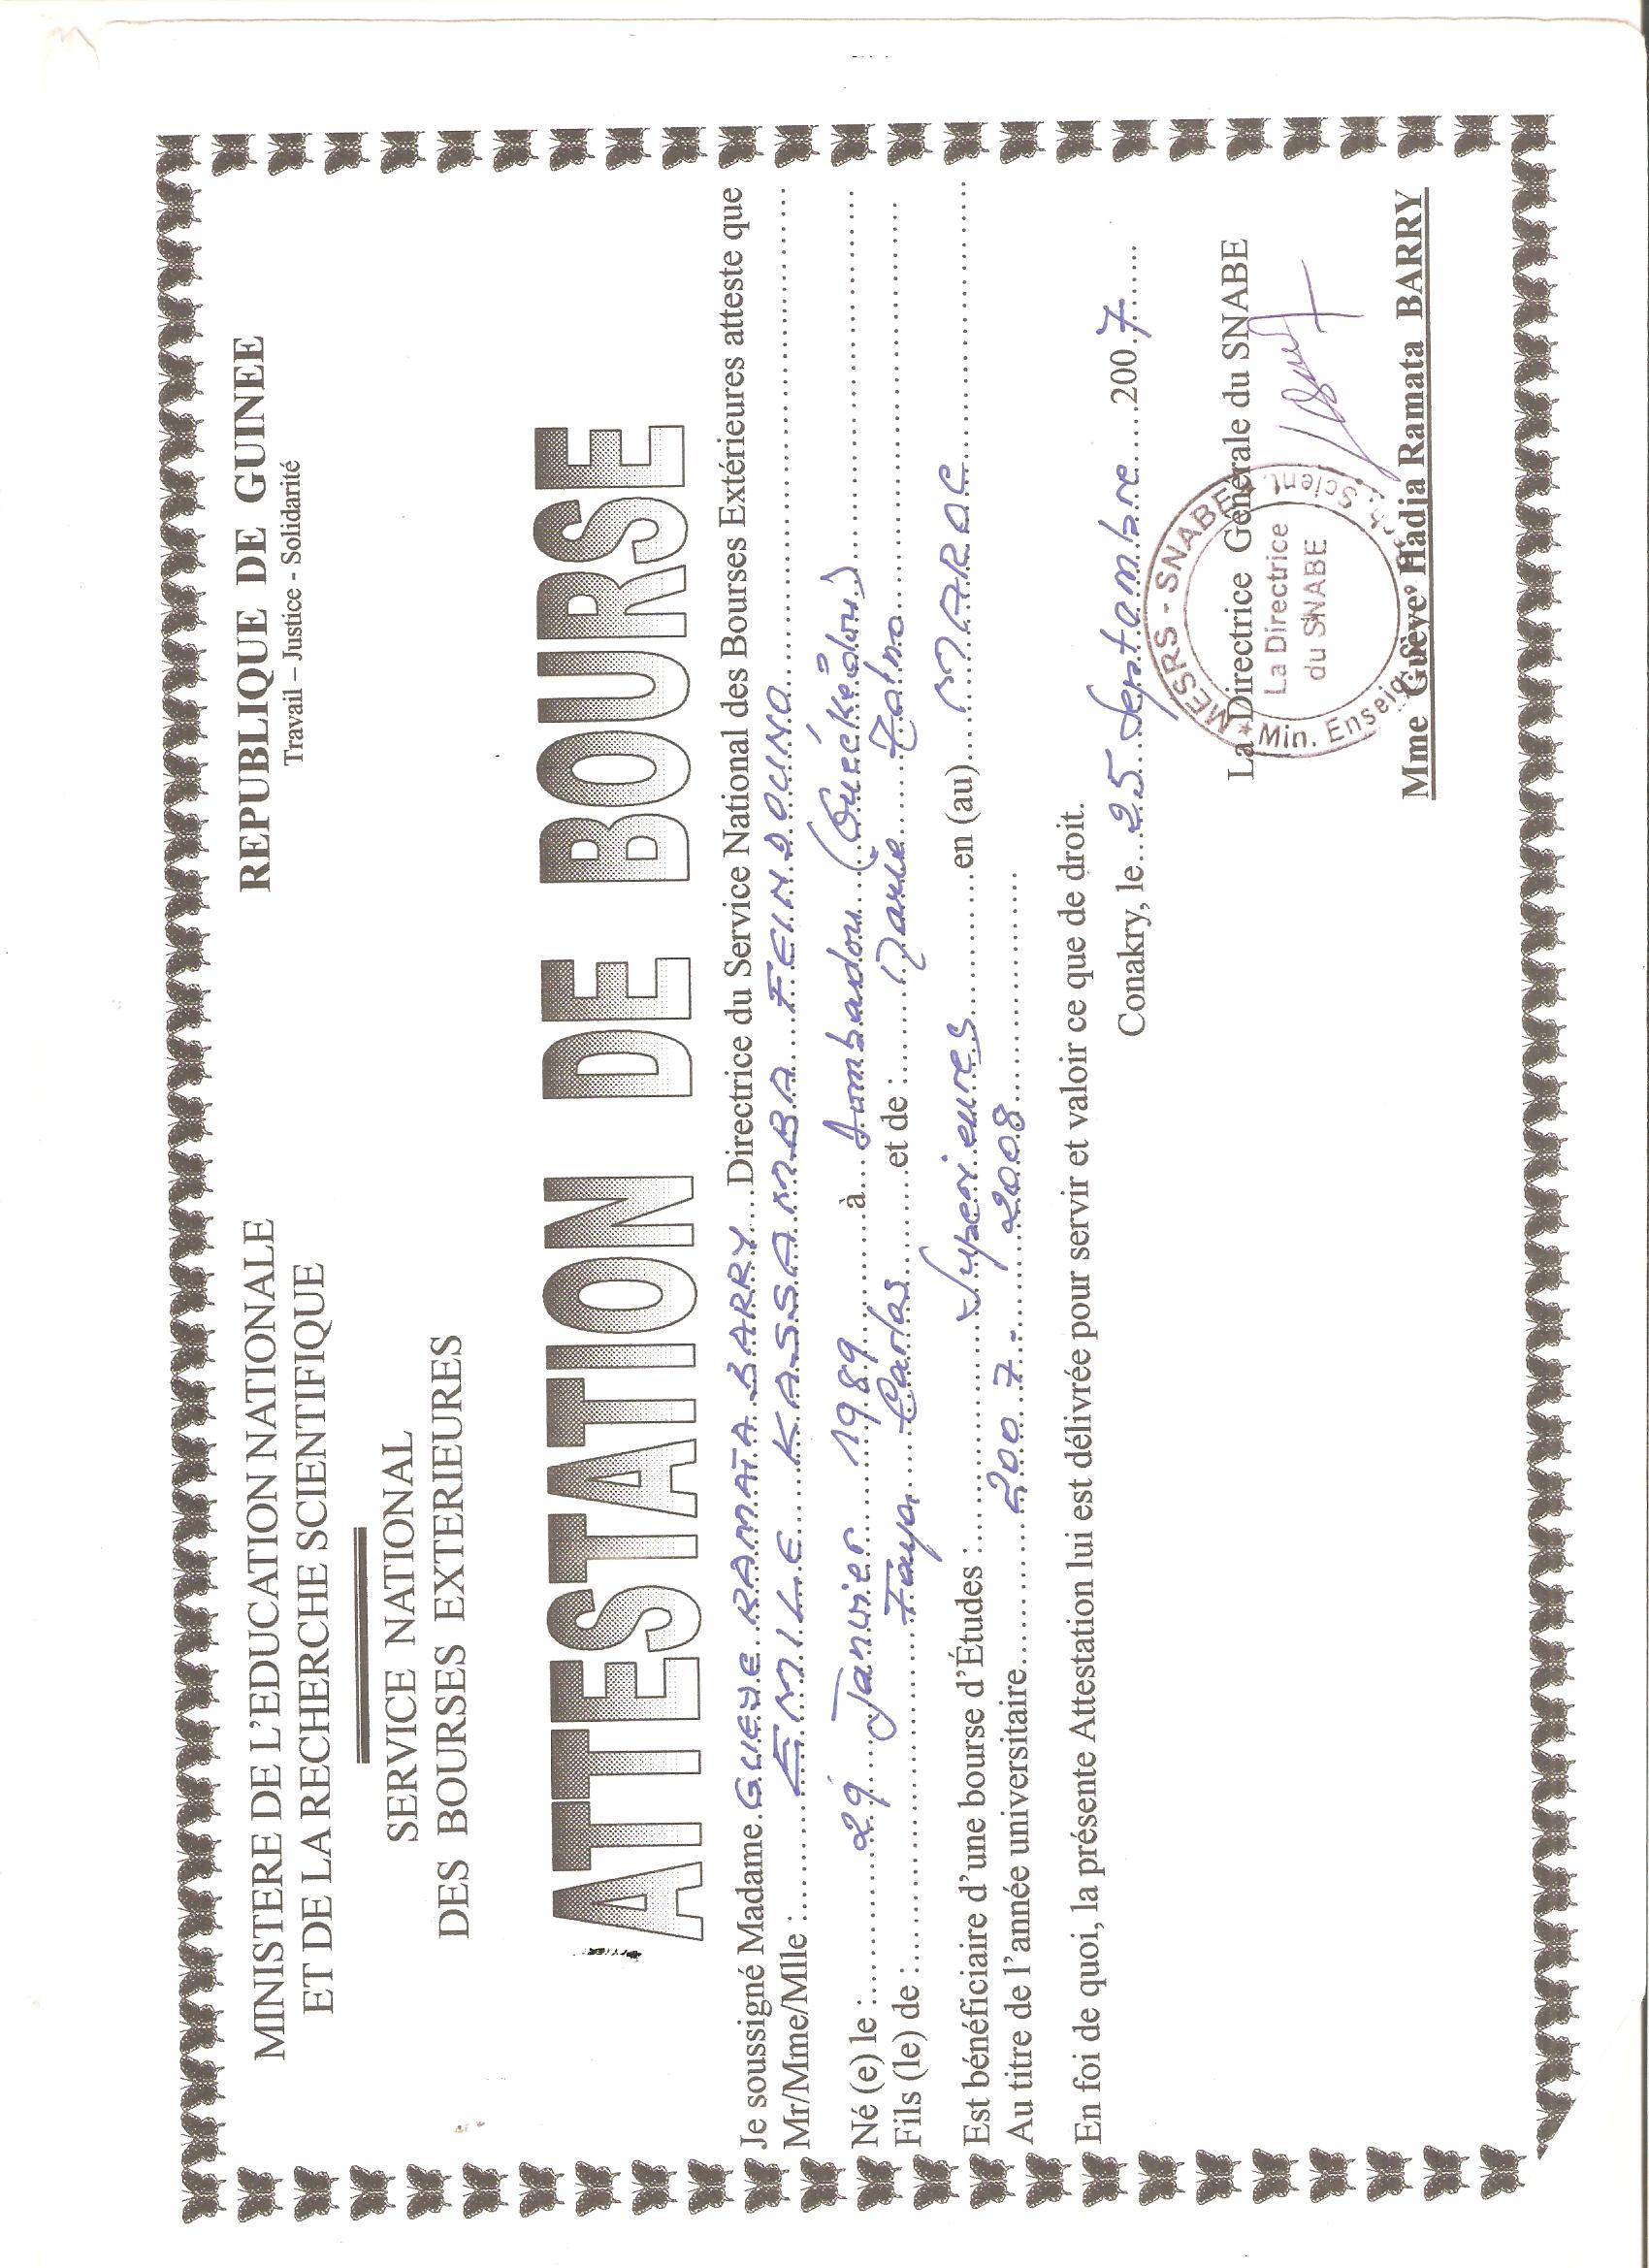 MINISTERE DE L'EDUCATION NATIONALE
ET DE LA RECHERCHE SCIENTIFIQUE
REPUBLIQUE DE GUINEE
Travail – Justice - Solidarité
SERVICE NATIONAL
DES BOURSES EXTERIEURES
ATTESTATION DE BOURSE
Je soussigné Madame GUEYE RAMATA BARRY Directrice du Service National des Bourses Extérieures atteste que
Mr/Mme/Mlle : EMILE KASSAMBA FEINDOUNO
Né (e) le : 29 Janvier 1989 à (Guéckédou)
Fils (le) de : Faya Carlos et de : Marie
Est bénéficiaire d'une bourse d'Études : Superieures en (au) MAROC
Au titre de l'année universitaire 2007 - 2008
En foi de quoi, la présente Attestation lui est délivrée pour servir et valoir ce que de droit.
Conakry, le 25 Septembre 2007
MESRS - SNABE
La Directrice Générale du SNABE
La Directrice
du SNABE
Min. Enseig. Scient.
Mme Guèye Hadja Ramata BARRY